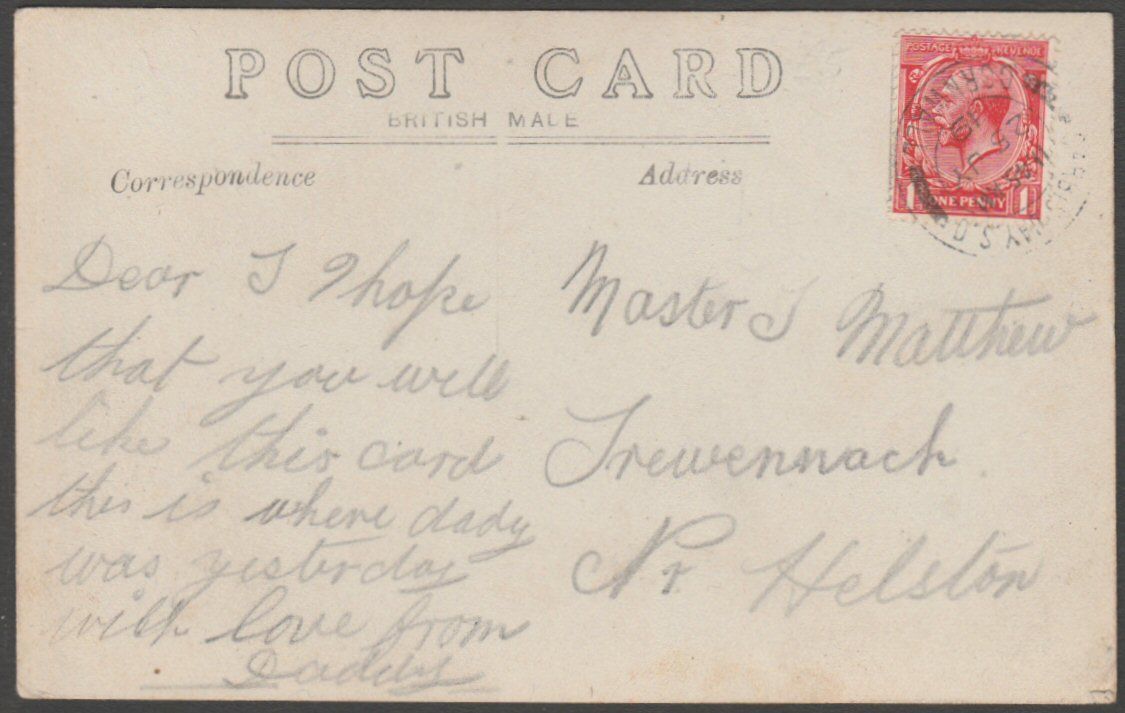 POST CARD
BRITISH MADE
Correspondence
Address
POSTAGE REVENUE
1 ONE PENNY 1
Dear J I hope
that you will
like this card
this is where dady
was yesterday
with love from
Daddy
Master J Matthew
Trewennack
Nr Helston